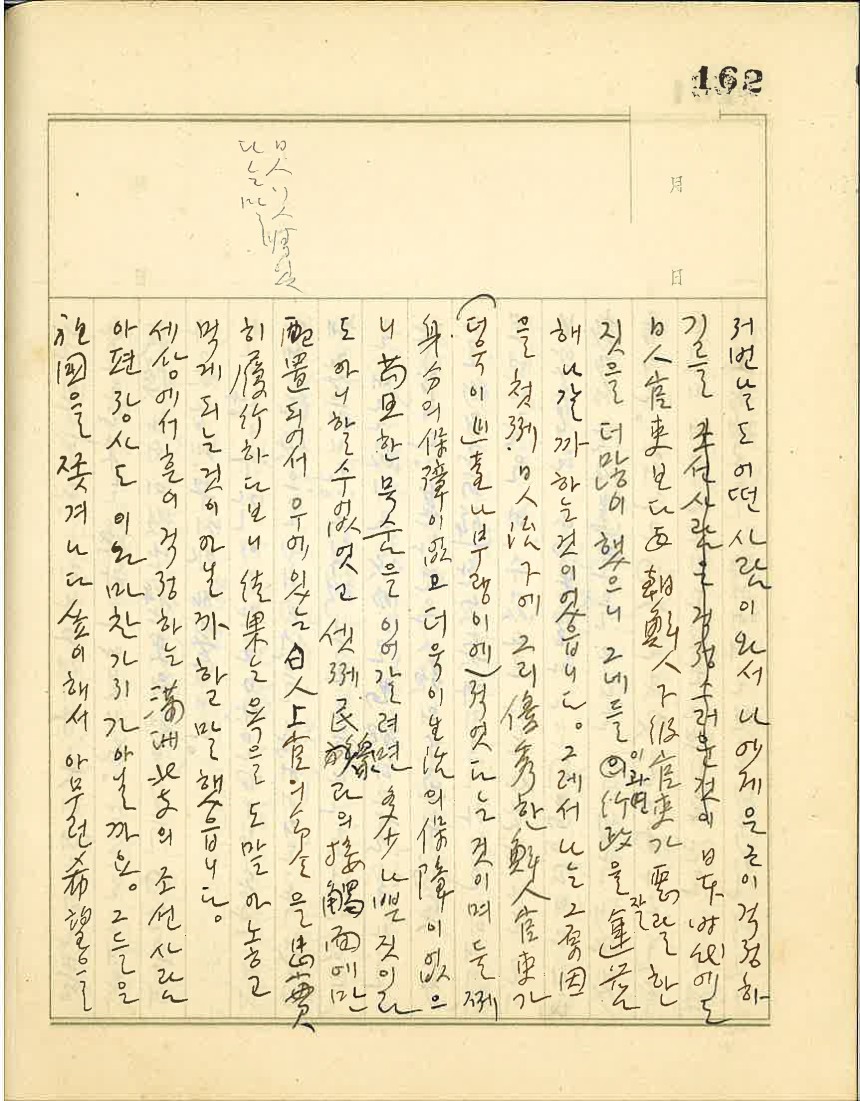 162
月
日
저번날도 어떤 사람이 와서 나에게 은근이 걱정하
기를 조선사람은 걱정수러운것이 日本时代에도
日人官吏보다도 朝鮮人下级官吏가 惡랄한
짓을 더많이 했으니 그네들이 과연 行政을 잘 運營
해나갈까 하는것이였읍니다。그레서 나는 그 原因
을 첫째. 日人治下에 그리 優秀한 鮮人官吏가
(더욱이 巡查나부랭이에) 적엇다는 것이며 둘째
身分의 保障이 없고 더욱이 生活의 保障이 없으
니 苟且한 목숨을 이어갈려면 多少 나쁜짓이라
도 아니할수없엇고 셋째. 民族과의 接觸面에만
配置되여서 우에있는 日人上官의 命令을 忠實
히 履行하다보니 結果는 욕을 도말아놓고
먹게되는것이 아닐까 하고 말했읍니다。
세상에서 흔이 걱정하는 滿洲北支의 조선사람
아편장사도 이와 마찬가지가 아닐까요。그들은
祖國을 쫓겨나다싶이해서 아무런 希望을